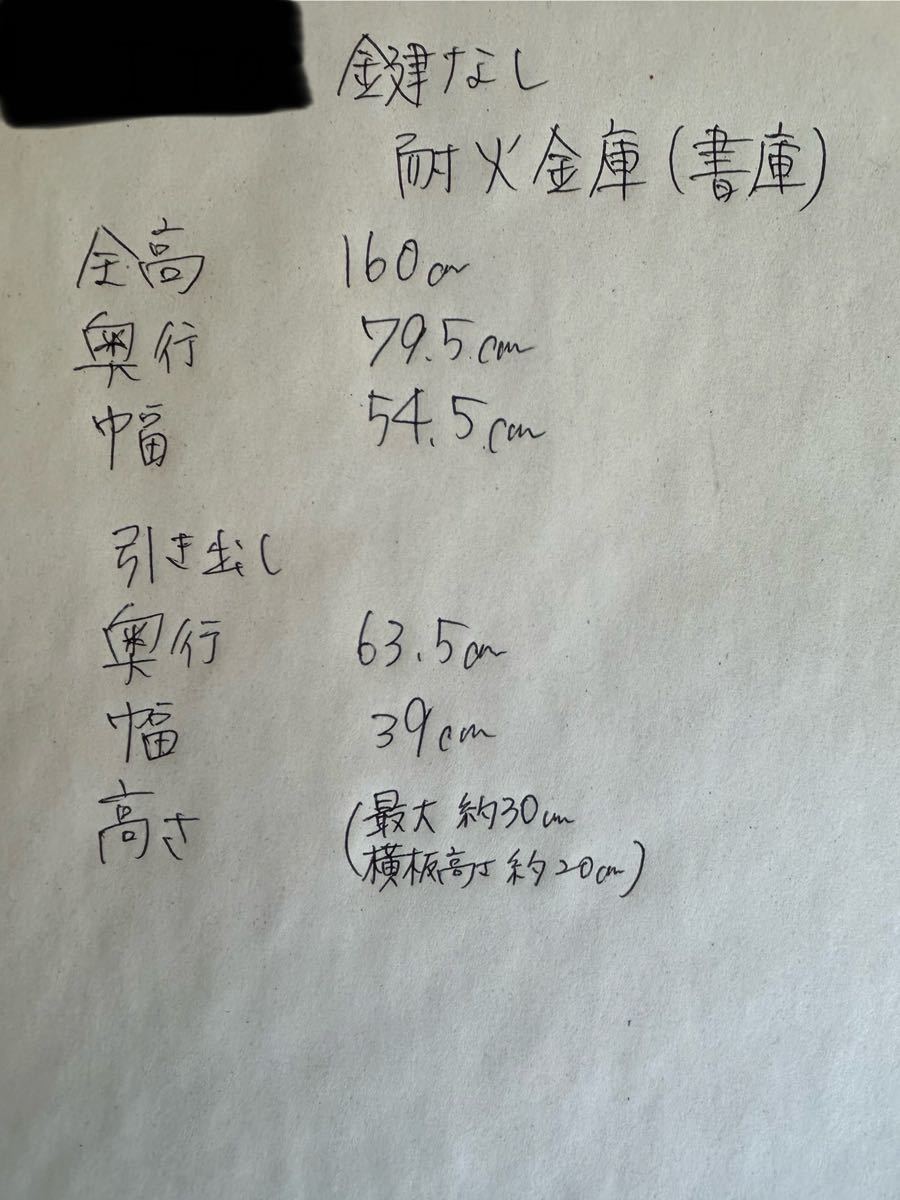 鍵なし
耐火金庫(書庫)
全高 160cm
奥行 79.5cm
巾幅 54.5cm
引き出し
奥行 63.5cm
幅 39cm
高さ (最大 約30cm
横板高さ 約20cm)